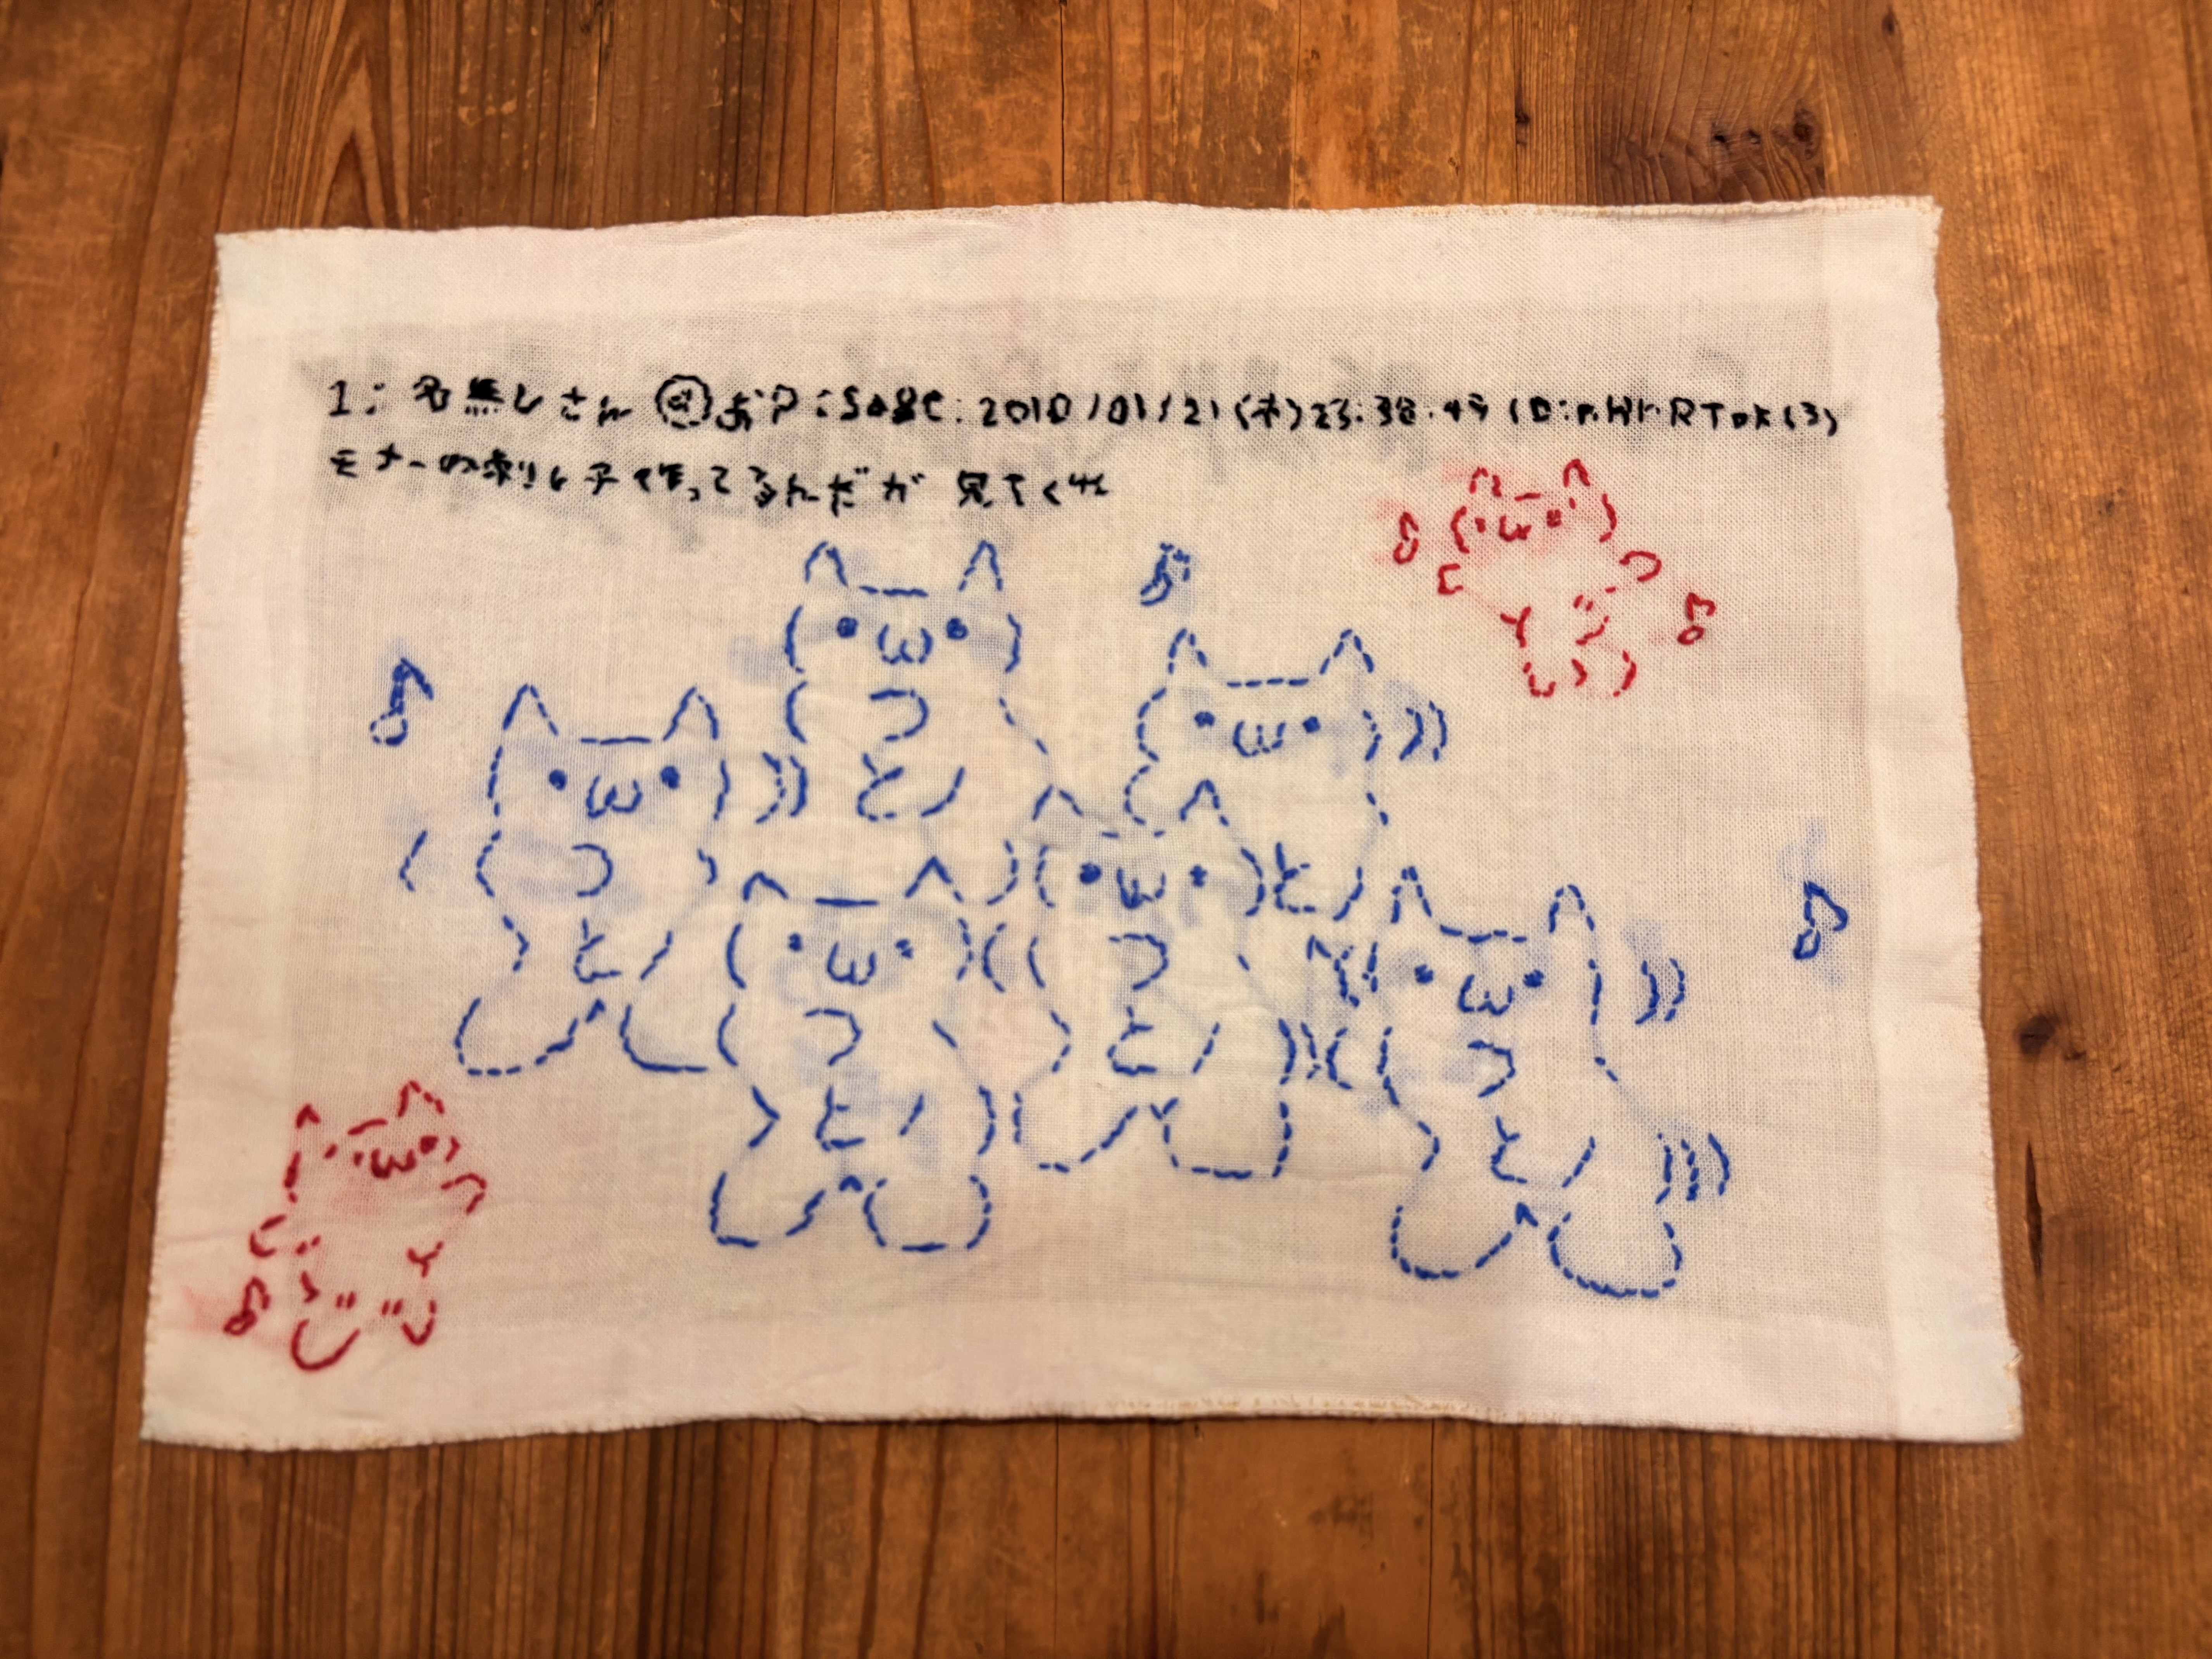 1:名無しさん@お户:sage:2010/01/21(木)23:38:49
モナーの刺し子作ってるんだが 見てくれ